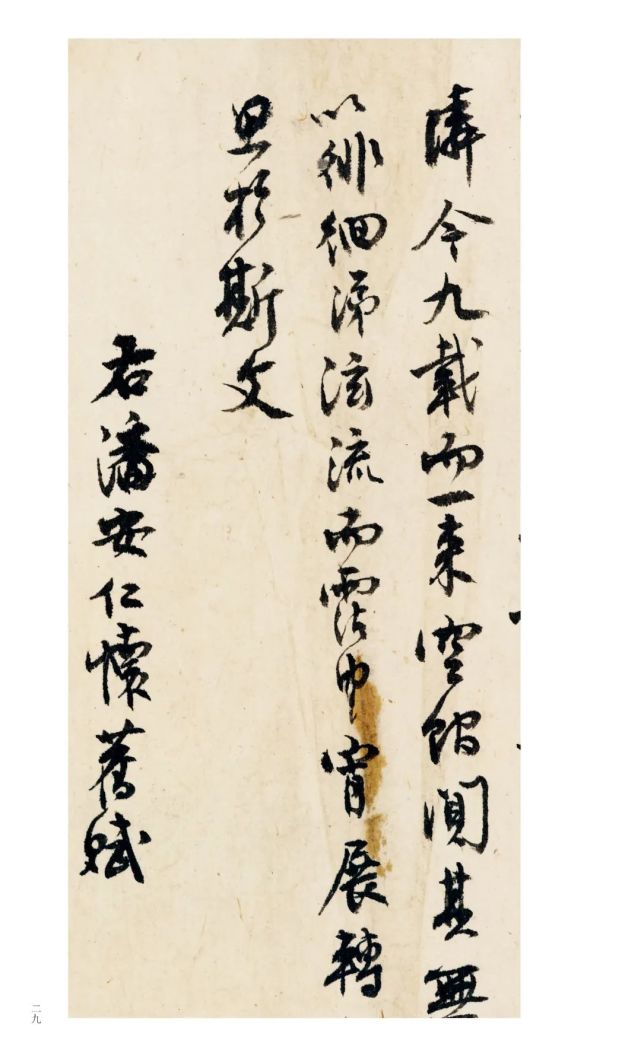 隣今九載而一来空館闃其無
以徘徊涕泫流而霑巾宵展轉
思於斯文
右潘安仁懷舊賦
二九